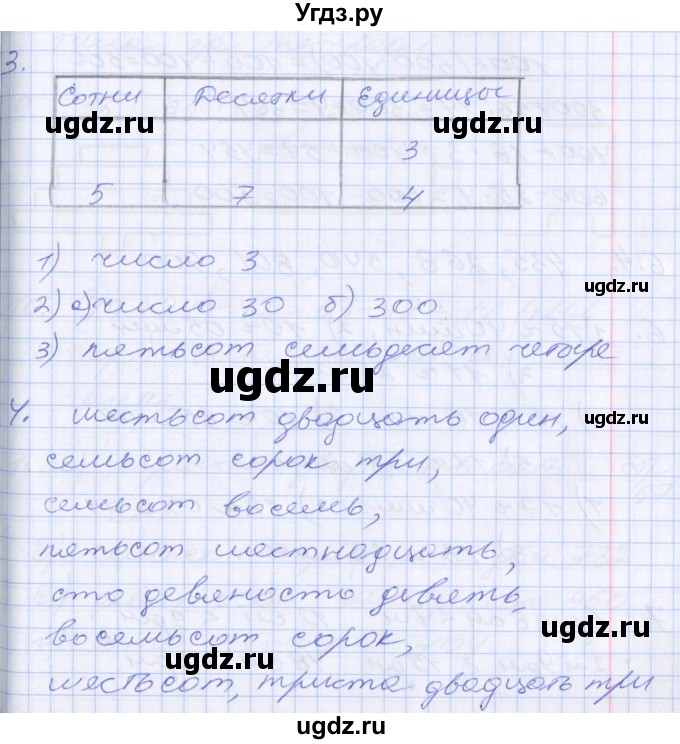 Угдз.ру
3.
Сотни Десятки Единицы
ugdz.ru ugdz.ru
3
5 7 4
1) число 3
ugdz.ru
2) а) число 30 б) 300
3) пятьсот семьдесят четыре
ugdz.ru
4. шестьсот двадцать один,
ugdz.ru
семьсот сорок три,
семьсот восемь,
ugdz.ru
пятьсот шестнадцать,
сто девяносто девять,
восемьсот сорок,
ugdz.ru ugdz.ru
шестьсот, триста двадцать три
ugdz.ru